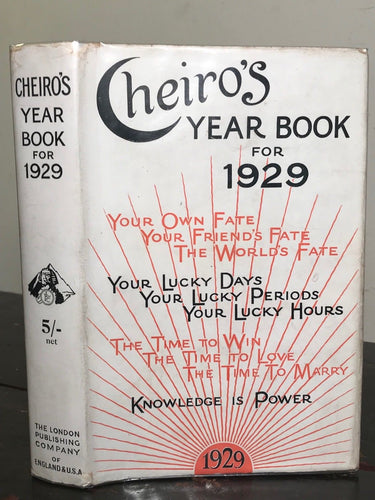 CHEIRO'S
YEAR
BOOK
FOR
1929
5/-
net
THE LONDON
PUBLISHING
COMPANY
OF
ENGLAND & U.S.A
Cheiro's
YEAR BOOK
FOR
1929
YOUR OWN FATE
YOUR FRIEND'S FATE
THE WORLD'S FATE
YOUR LUCKY DAYS
YOUR LUCKY PERIODS
YOUR LUCKY HOURS
THE TIME TO WIN
THE TIME TO LOVE
THE TIME TO MARRY
KNOWLEDGE IS POWER
1929